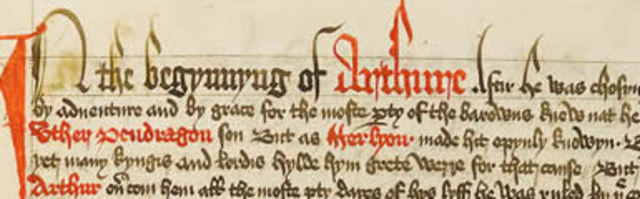 In the begynnyng of Arthure Aftir he was chosyn
by adventure and by grace for the moste pty of the barowns knew nat he
Uther Pendragon son But as Merlyon made hit opynly knowyn
yet many kyngis and lordis hylde hym grete werre for that cause But
Arthur com hem all the moste pty dayes of hys lyff he was ruled by